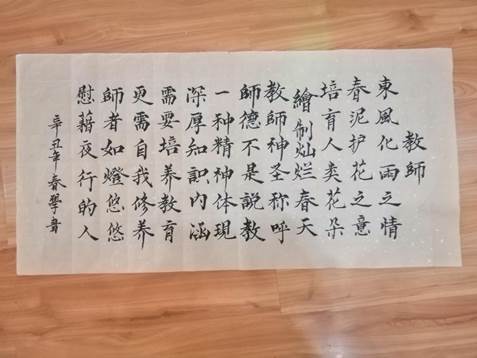 教師
東風化雨之情
春泥护花之意
培育人类花朵
繪制灿烂春天
教師神圣称呼
師德不是說教
一种精神体现
深厚知识内涵
需要培养教育
更需自我修养
師者如燈悠悠
慰藉夜行的人
辛丑年 春學書